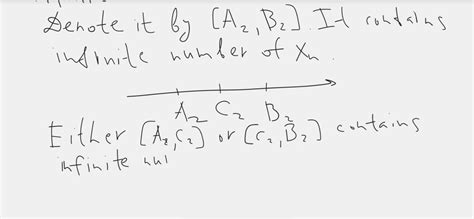 Denote it by [A₂, B₂]. It contains
infinite number of Xₙ.
A₂ C₂ B₂
Either [A₂, C₂] or [C₂, B₂] contains
infinite nu